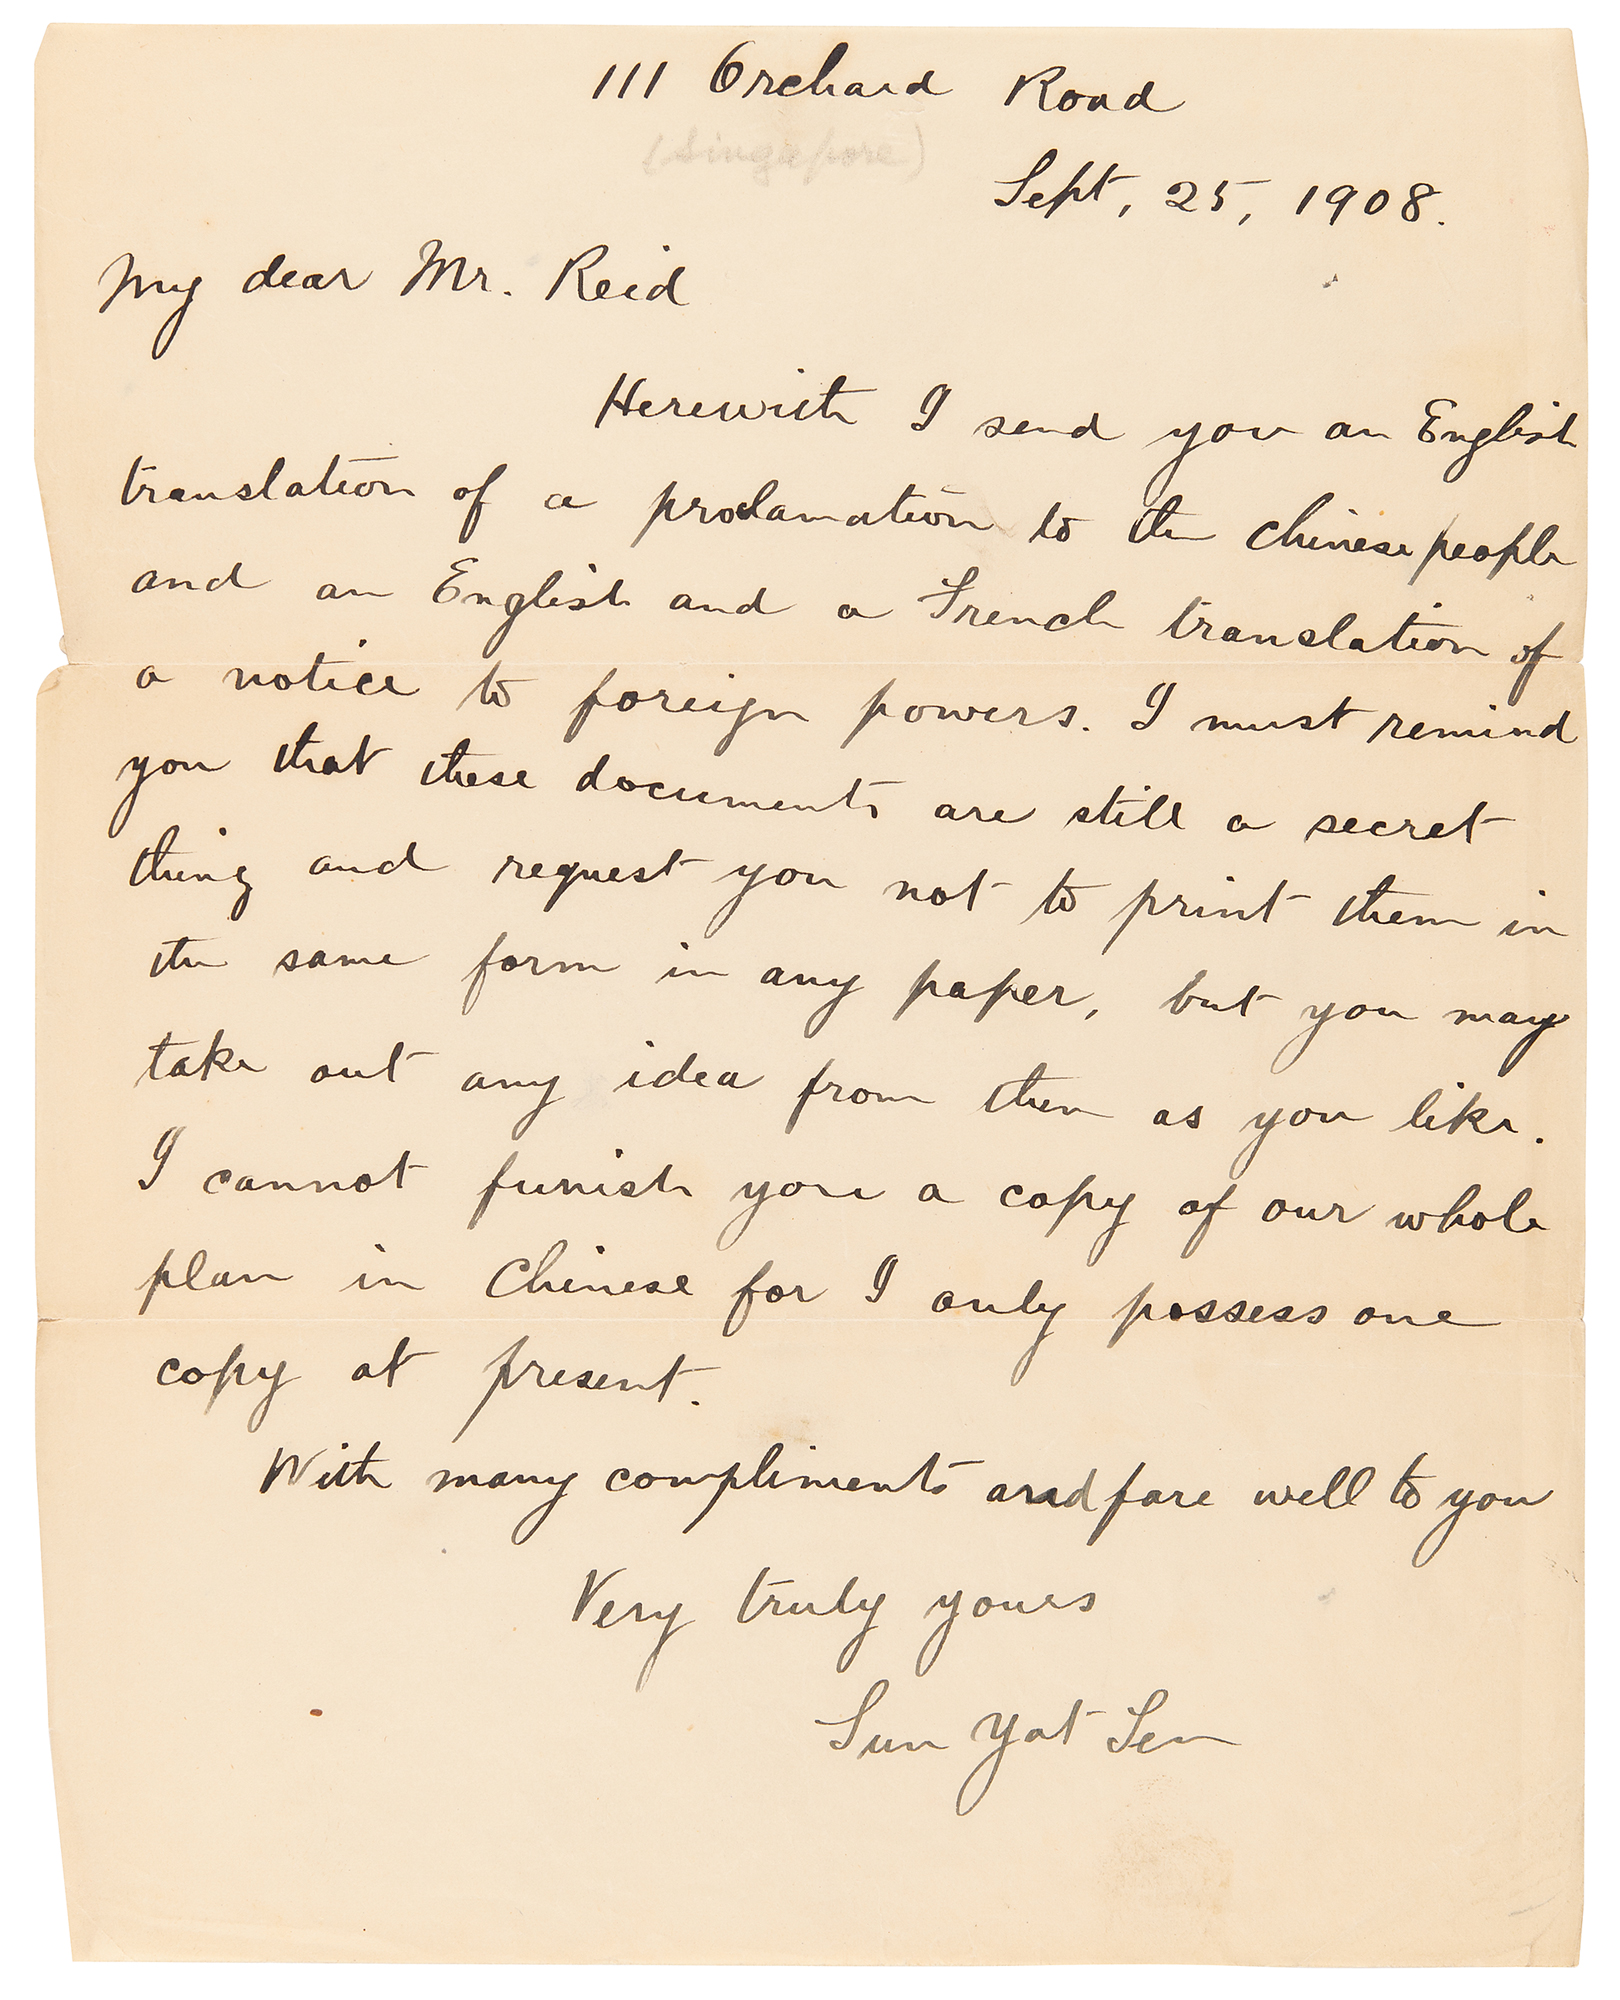 111 Orchard Road
(Singapore)
Sept, 25, 1908.
My dear Mr. Reid
Herewith I send you an English
translation of a proclamation to the Chinese people
and an English and a French translation of
a notice to foreign powers. I must remind
you that these documents are still a secret
thing and request you not to print them in
the same form in any paper, but you may
take out any idea from them as you like.
I cannot funish you a copy of our whole
plan in Chinese for I only possess one
copy at present.
With many compliments and fare well to you
Very truly yours
Sun Yat Sen